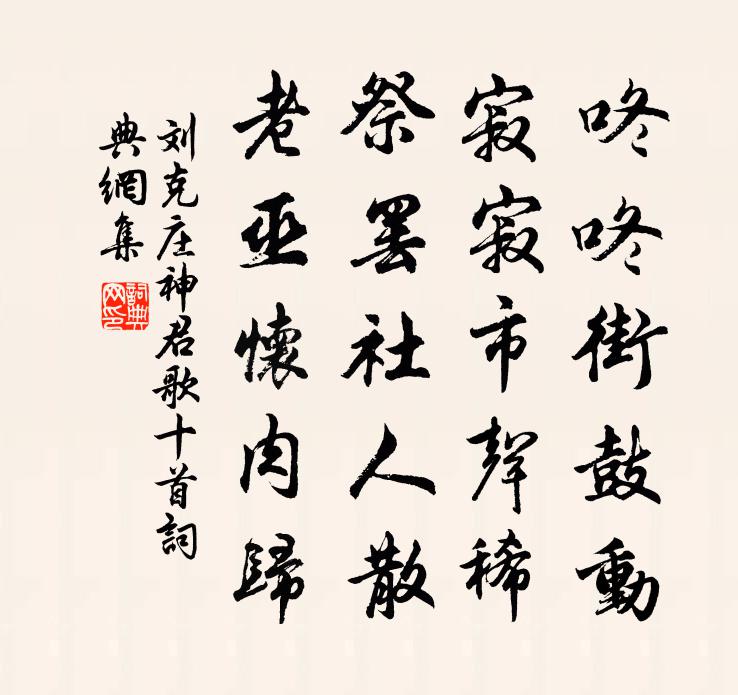 咚咚街鼓動
寂寂市聲稀
祭罢社人散
老巫懷肉歸
刘克庄神君歌十首詞
典網集
詞典
网印